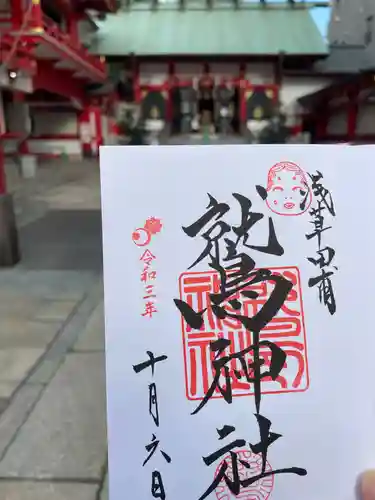 浅草田甫
鷲神社
令和三年
十月六日